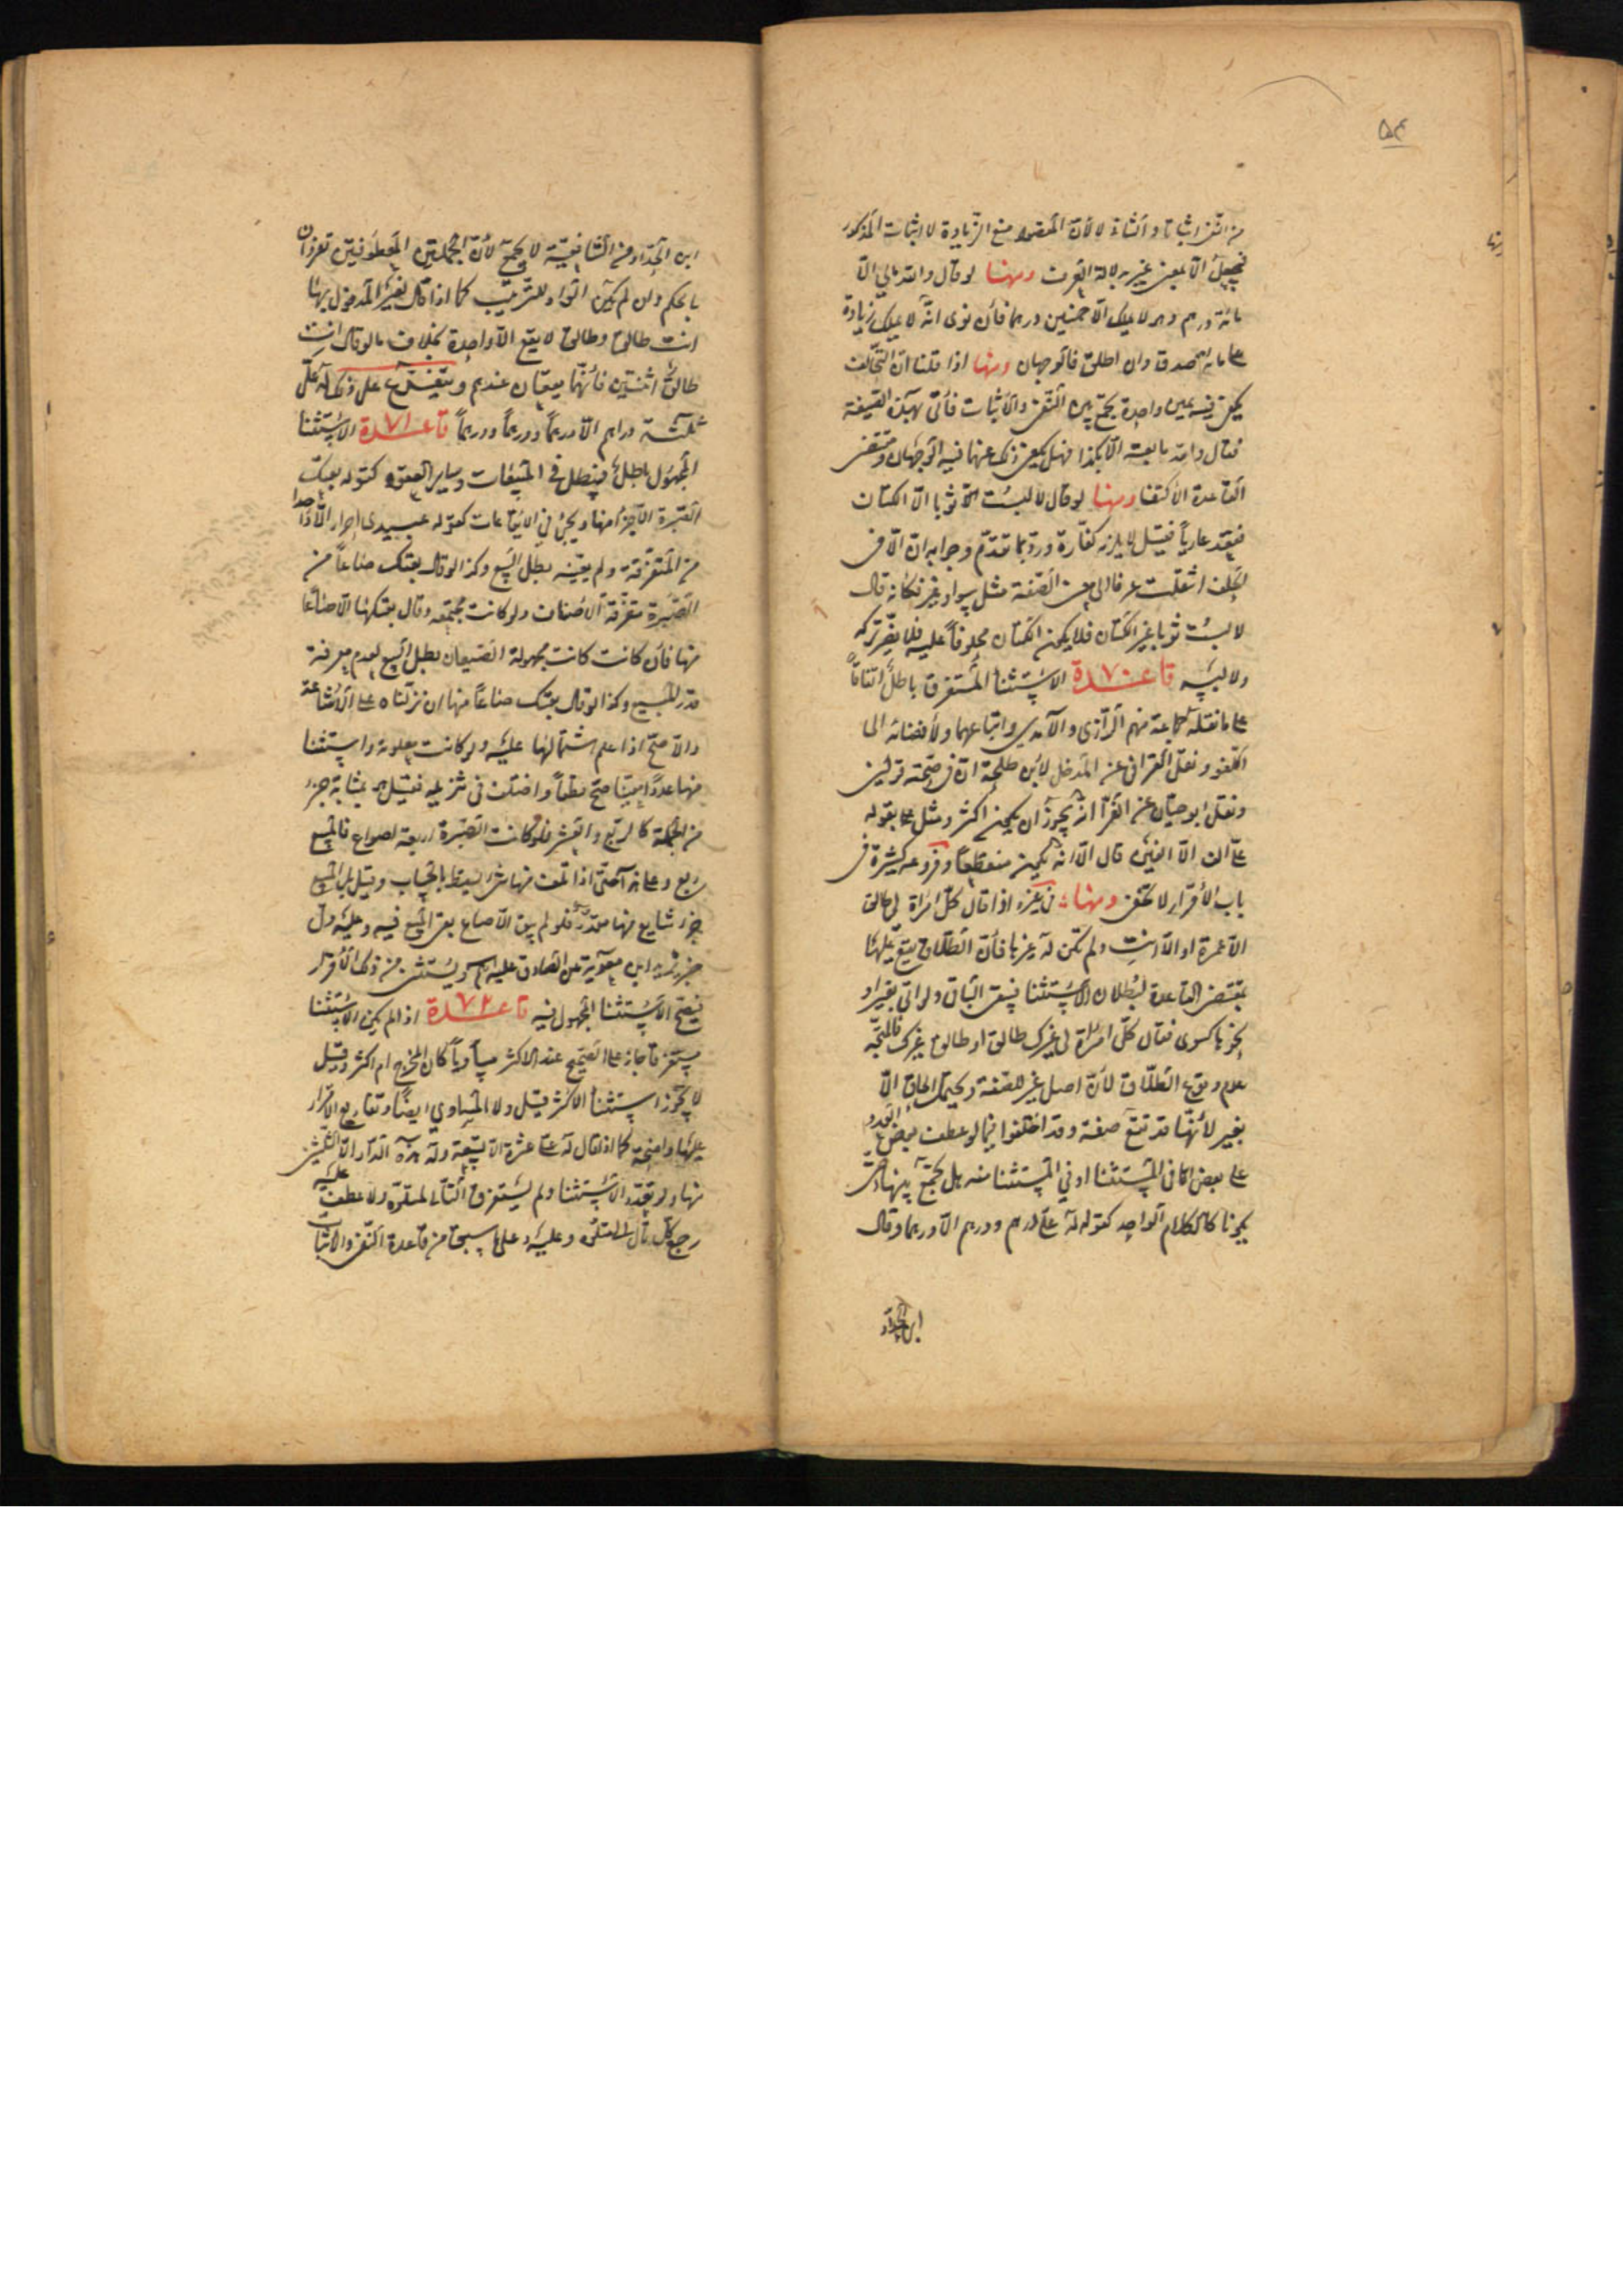 ۵۴
من النفي اثباتا والثانى لا لأن المقصود منع الزيادة لا اثبات المذكور
فيجعل الا بمعنى غير بدلالة العرف ومنها لو قال والله مالي الا
مائة درهم وهو لا يملك الا خمسين درهما فأن نوى انه لا يملك زيادة
على مائة صدق وان اطلق فالوجهان ومنها اذا قلنا ان التحالف
يكفى فيه يمين واحدة يجمع بين النفى والأثبات فأتى بهذه الصيغة
فقال والله ما بعته الا بكذا فهل يكفى ذلك عنها فيه الوجهان ومقتضى
القاعدة الأكتفا ومنها لو قال لا لبست ثوبا الا الكتان
فقعد عاريا فقيل لا يلزمه كفارة ورد بما تقدم وجوابه ان الا فى
الحلف انتقلت عرفا الى معنى الصفة مثل سوا وغير فكأنه قال
لا لبست ثوبا غير الكتان فلا يكون الكتان محلوفا عليه فلا يضر تركه
ولا لبسه قاعدة ۷۰ الاستثنا المستغرق باطل اتفاقا
على ما نقله جماعة منهم الرازى والآمدي واتباعهما ولأفضائه الى
اللغو ونقل القرافى عن المدخل لابن طلحة ان فى صحته قولين
ونقل ابو حيان عن الفرا انه يجوز ان يكون اكثر ومثل بقوله
على الف الا الفين قال الا انه يكون منقطعا وفروعه كثيرة فى
باب الأقرار لا تخفى ومنها فى غيره اذا قال كل امراة لي طالق
الا عمرة او الا انت ولم تكن له غيرها فأن الطلاق يقع عليها
بمقتضى القاعدة لبطلان الأستثنا فيبقى الباقى ولو اتى بغير او
نحوها كسوى فقال كل امراة لي غيرك طالق او طالق غيرك فالمتجه
عدم وقوع الطلاق لأن اصل غير للصفة ويحتمل الحاق الا
بغير لأنها قد تقع صفة وقد اختلفوا فيما لو عطف بعض العدد
على بعض اما فى المستثنا او في المستثنا منه هل يجمع بينهما حتى
يكونا كالكلام الواحد كقوله له علي درهم ودرهم الا درهما وقال
ابن الحداد
ابن الحداد من الشافعية لا يجمع لأن الجملتين المعطوفتين تفردان
بالحكم وان لم يكن الواو للترتيب كما اذا قال لغير المدخول بها
انت طالق وطالق لا يقع الا واحدة بخلاف ما لو قال انت
طالق اثنتين فأنهما يقعان عندهم ويتفرع على ذلك له علي
ثلثة دراهم الا درهما ودرهما ودرهما قاعدة ۷۱ الاستثنا
المجهول باطل فيبطل في المبيعات وساير العقود كقوله بعتك
الصبرة الا جزءا منها ويجئ في الايقاعات كقوله عبيدى احرار الا واحدا
من المتفرقة ولم يعينه بطل البيع وكذا لو قال بعتك صاعا من
الصبرة متفرقة الأصناف ولو كانت مجتمعه وقال بعتكها الا صاعا
منها فأن كانت كانت مجهولة الصيعان بطل البيع لعدم معرفة
قدر المبيع وكذا لو قال بعتك صاعا منها ان نزلناه على الأشاعة
والأصح اذا علم اشتمالها عليه ولو كانت معلومة واستثنا
منها عددا معينا صح قطعا واختلف فى تنزيله فقيل هو بمثابة جزء
من الجملة كالربع والعشر فلو كانت الصبرة اربعة اصواع فالمبيع
ربع وعلى هذا حتى اذا تلف منها شئ يسقط بالحساب وقيل بل المبيع
جزء شايع منها مقدر فلو لم يبق الا صاع بقى المبيع فيه وعليه دل
خبر بريد ابن معوية عن الصادق عليه السلام ويستثنى من ذلك الأقرار
فيصح الأستثنا المجهول فيه قاعدة ۷۲ اذا لم يكن الأستثنا
مستغرقا جاز على الصحيح عند الاكثر مساويا كان المخرج ام اكثر وقيل
لا يجوز استثنا الأكثر وقيل ولا المساوي ايضا وتفاريع الأقرار
عليها واضحة كما اذا قال له على عشرة الا تسعة وله هذه الدار الا الثلثين
منها ولو تعدد الأستثنا ولم يستغرق التالى لمتلوه ولا عطف عليه
رجع كل تال الى متلوه وعليه وعلى ما سبق من قاعدة النفى والاثبات